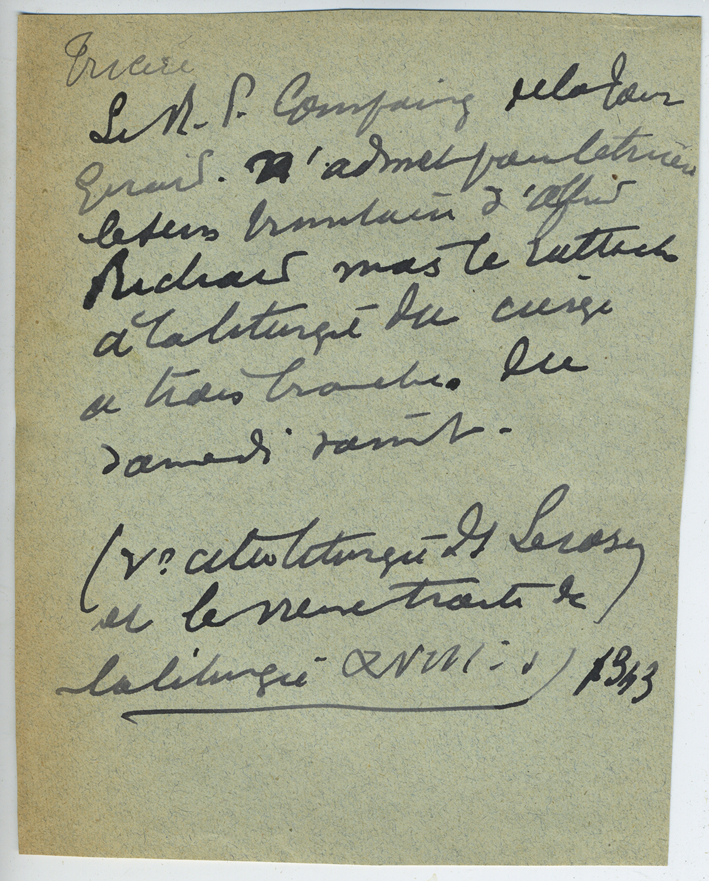 Le R. P. Compaing de la Tour
Girard. n'admet pas
le sens d'Alfred
Richard mais le rattache
à la liturgie du cierge
à trois branches du
samedi saint.
(Vo cette liturgie ds Lerosey
et le traité de
la liturgie XVIII s) 1943